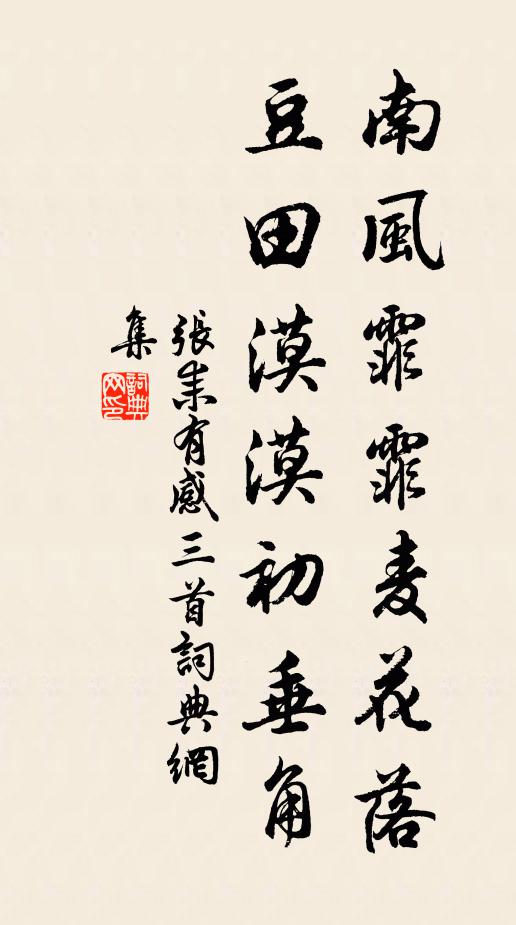 南風霏霏麦花落
豆田漠漠初垂角
張耒有感三首詞典網
集
詞典網印